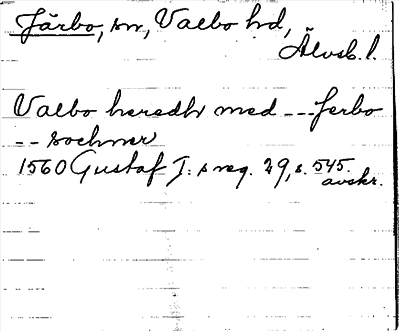 Järbo, sn, Valbo hd,
Älvsb. l.
Valbo heredh med --- Jerbo
-- sochner
1560 Gustaf I:s reg. 29, s. 545.
avskr.